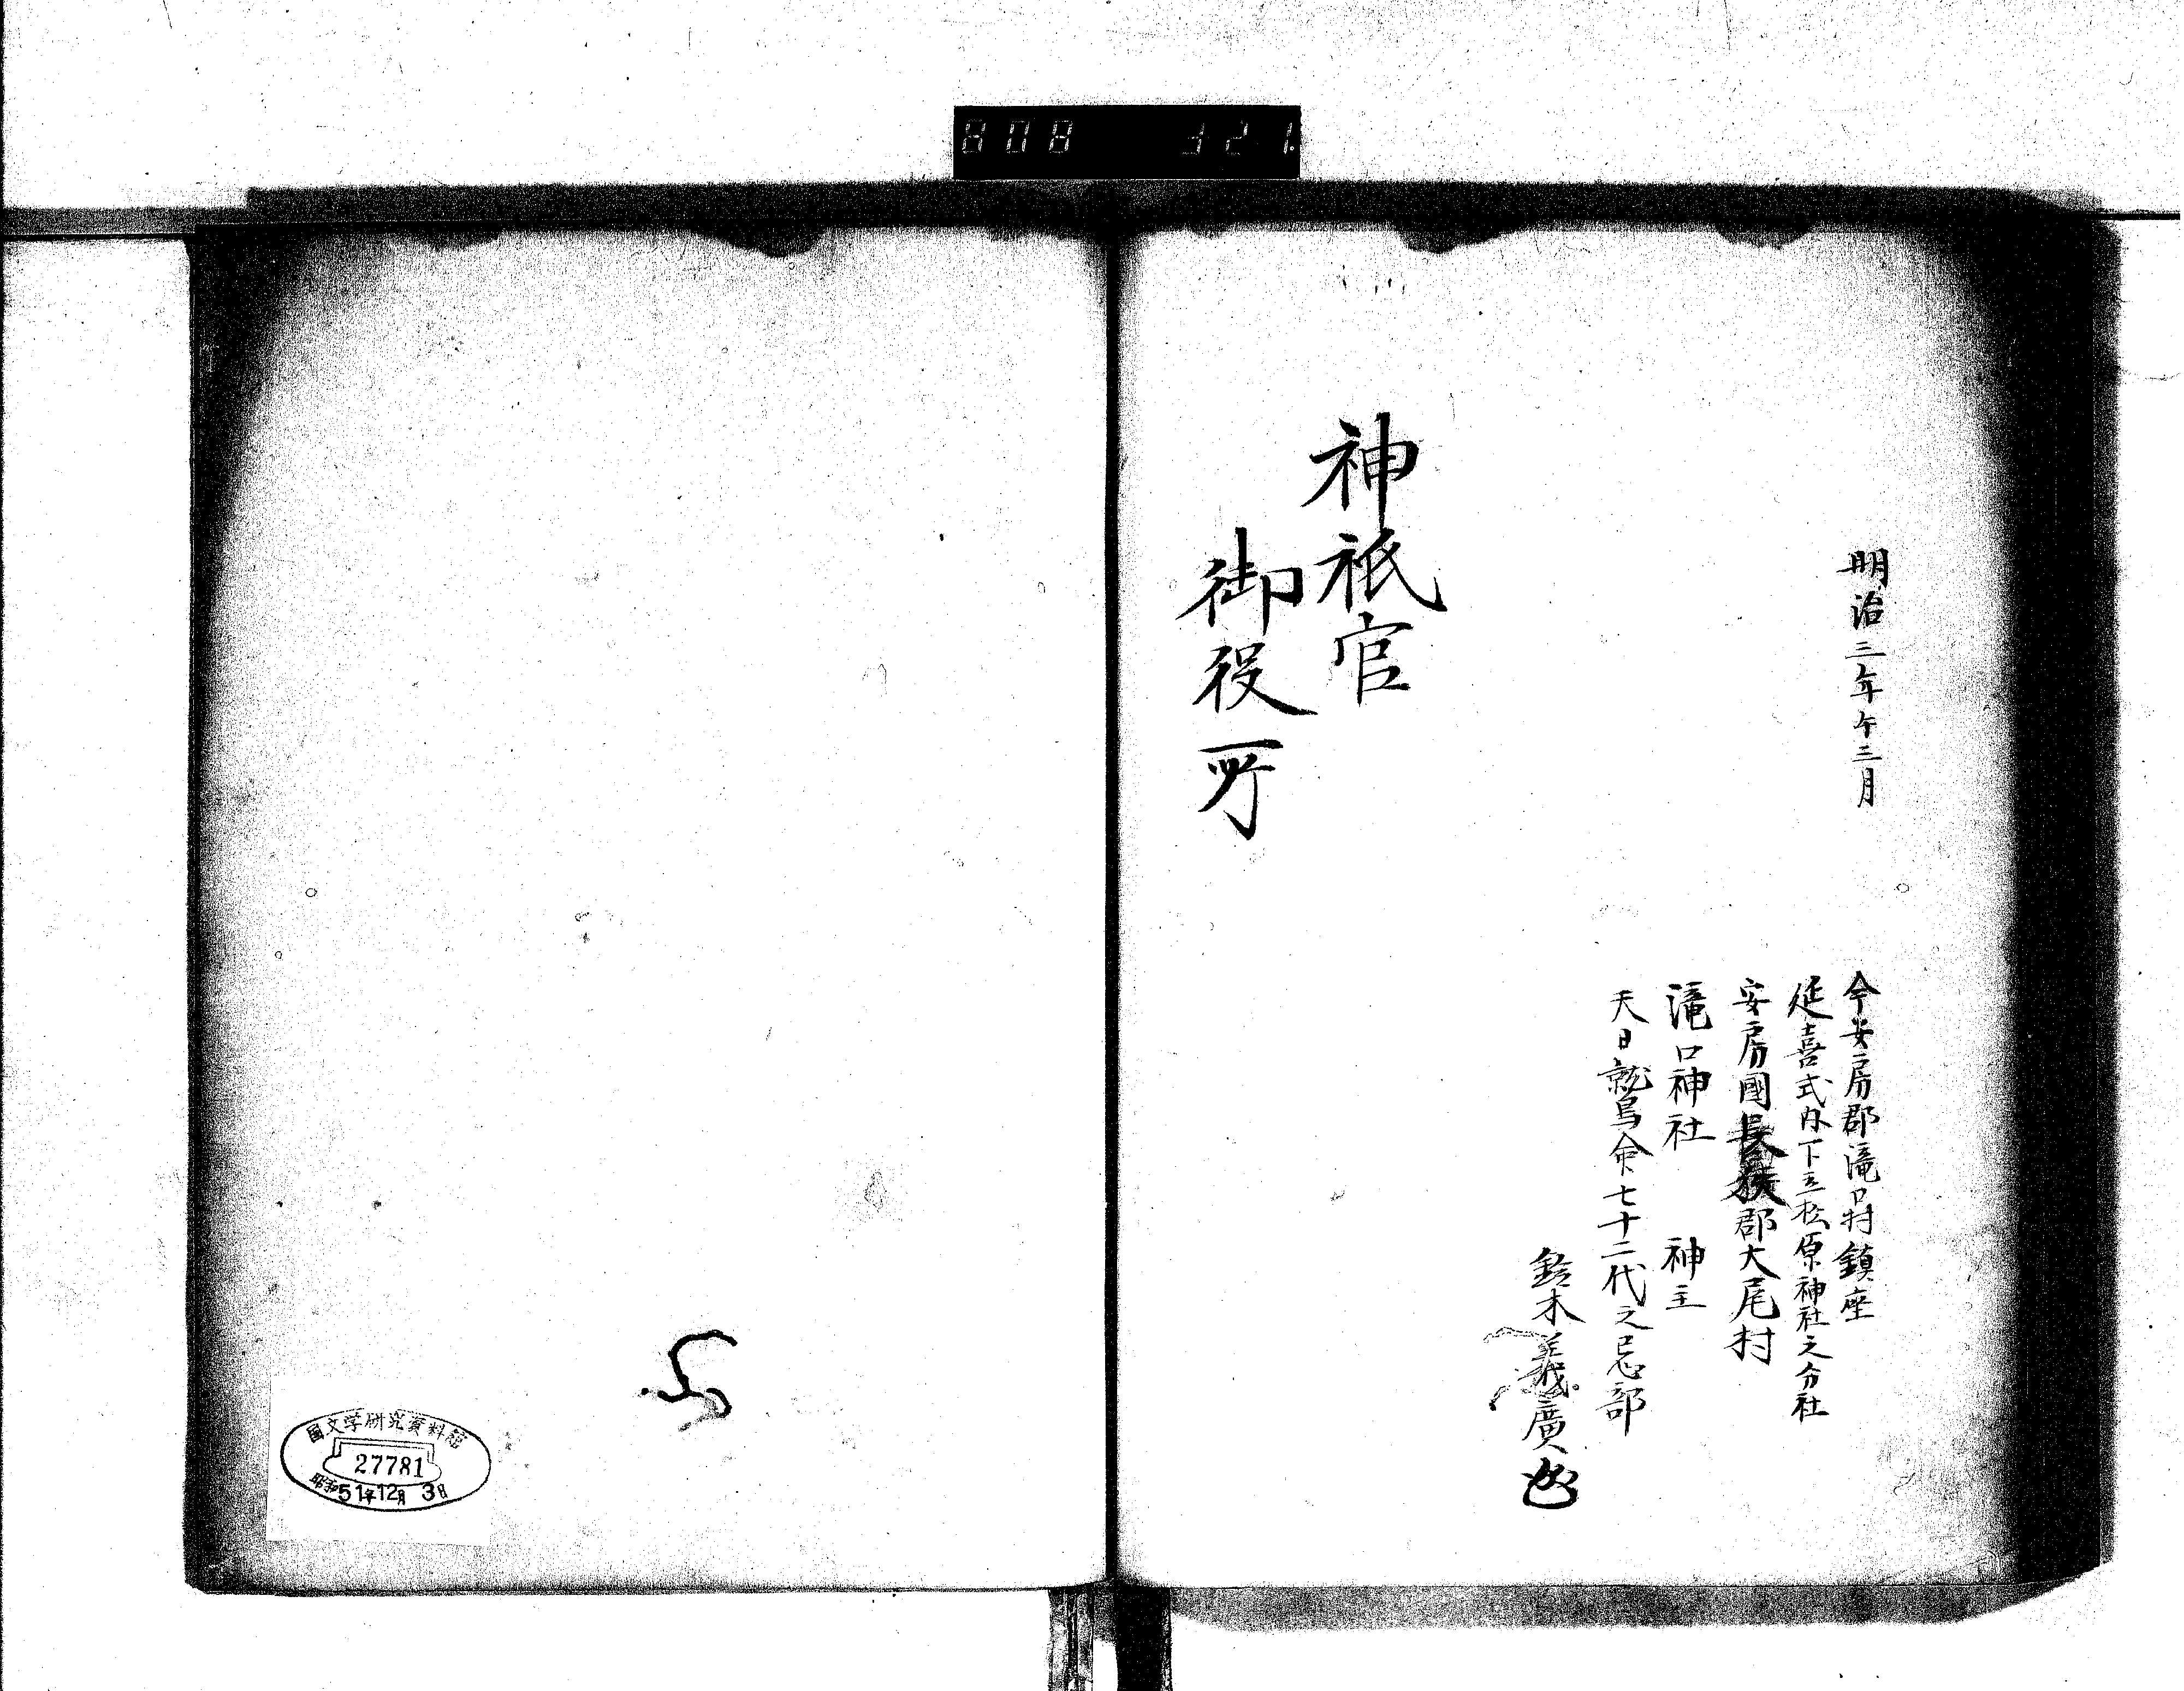 808 321.
明治三年午三月
今安房郡滝口村鎮座
延喜式内下立松原神社之分社
安房國長狹郡大尾村
滝口神社 神主
天日鷲命七十二代之忌部
鈴木義廣
神祇官
御役所
國文学研究資料館
27781
昭和51年12月3日